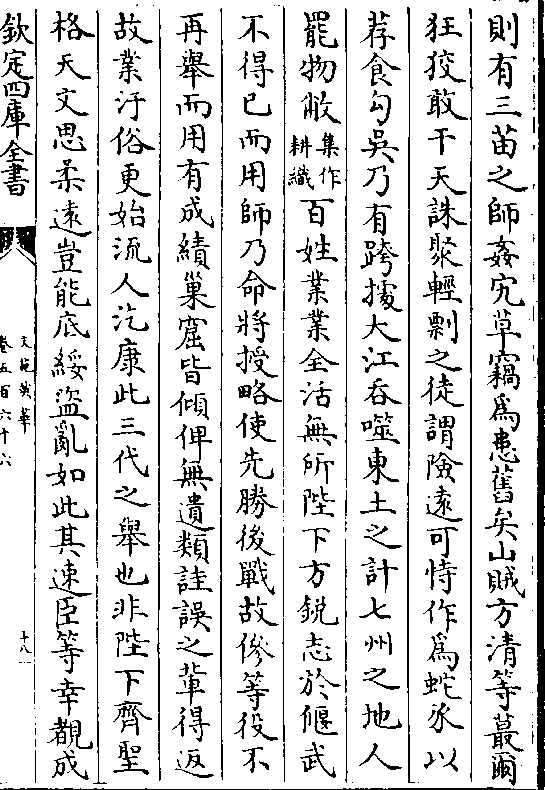 則有三苗之師姦宄草竊為患舊矣山賊方清等蕞爾
狂狡敢干天誅聚輕剽之徒謂險遠可恃作為蛇豕以
荐食勾吳乃有跨據大江吞噬東土之計七州之地人
罷物敝集作耕織百姓業業全活無所陛下方鋭志於偃武
不得已而用師乃命將授略使先勝後戰故修等役不
再舉而用有成績巢窟皆傾俾無遺類詿誤之輩得返
故業汙俗更始流人汔康此三代之舉也非陛下齊聖
格天文思柔遠豈能底綏盜亂如此其速臣等幸覩成
欽定四庫全書
文苑英華
卷五百六十六
十八